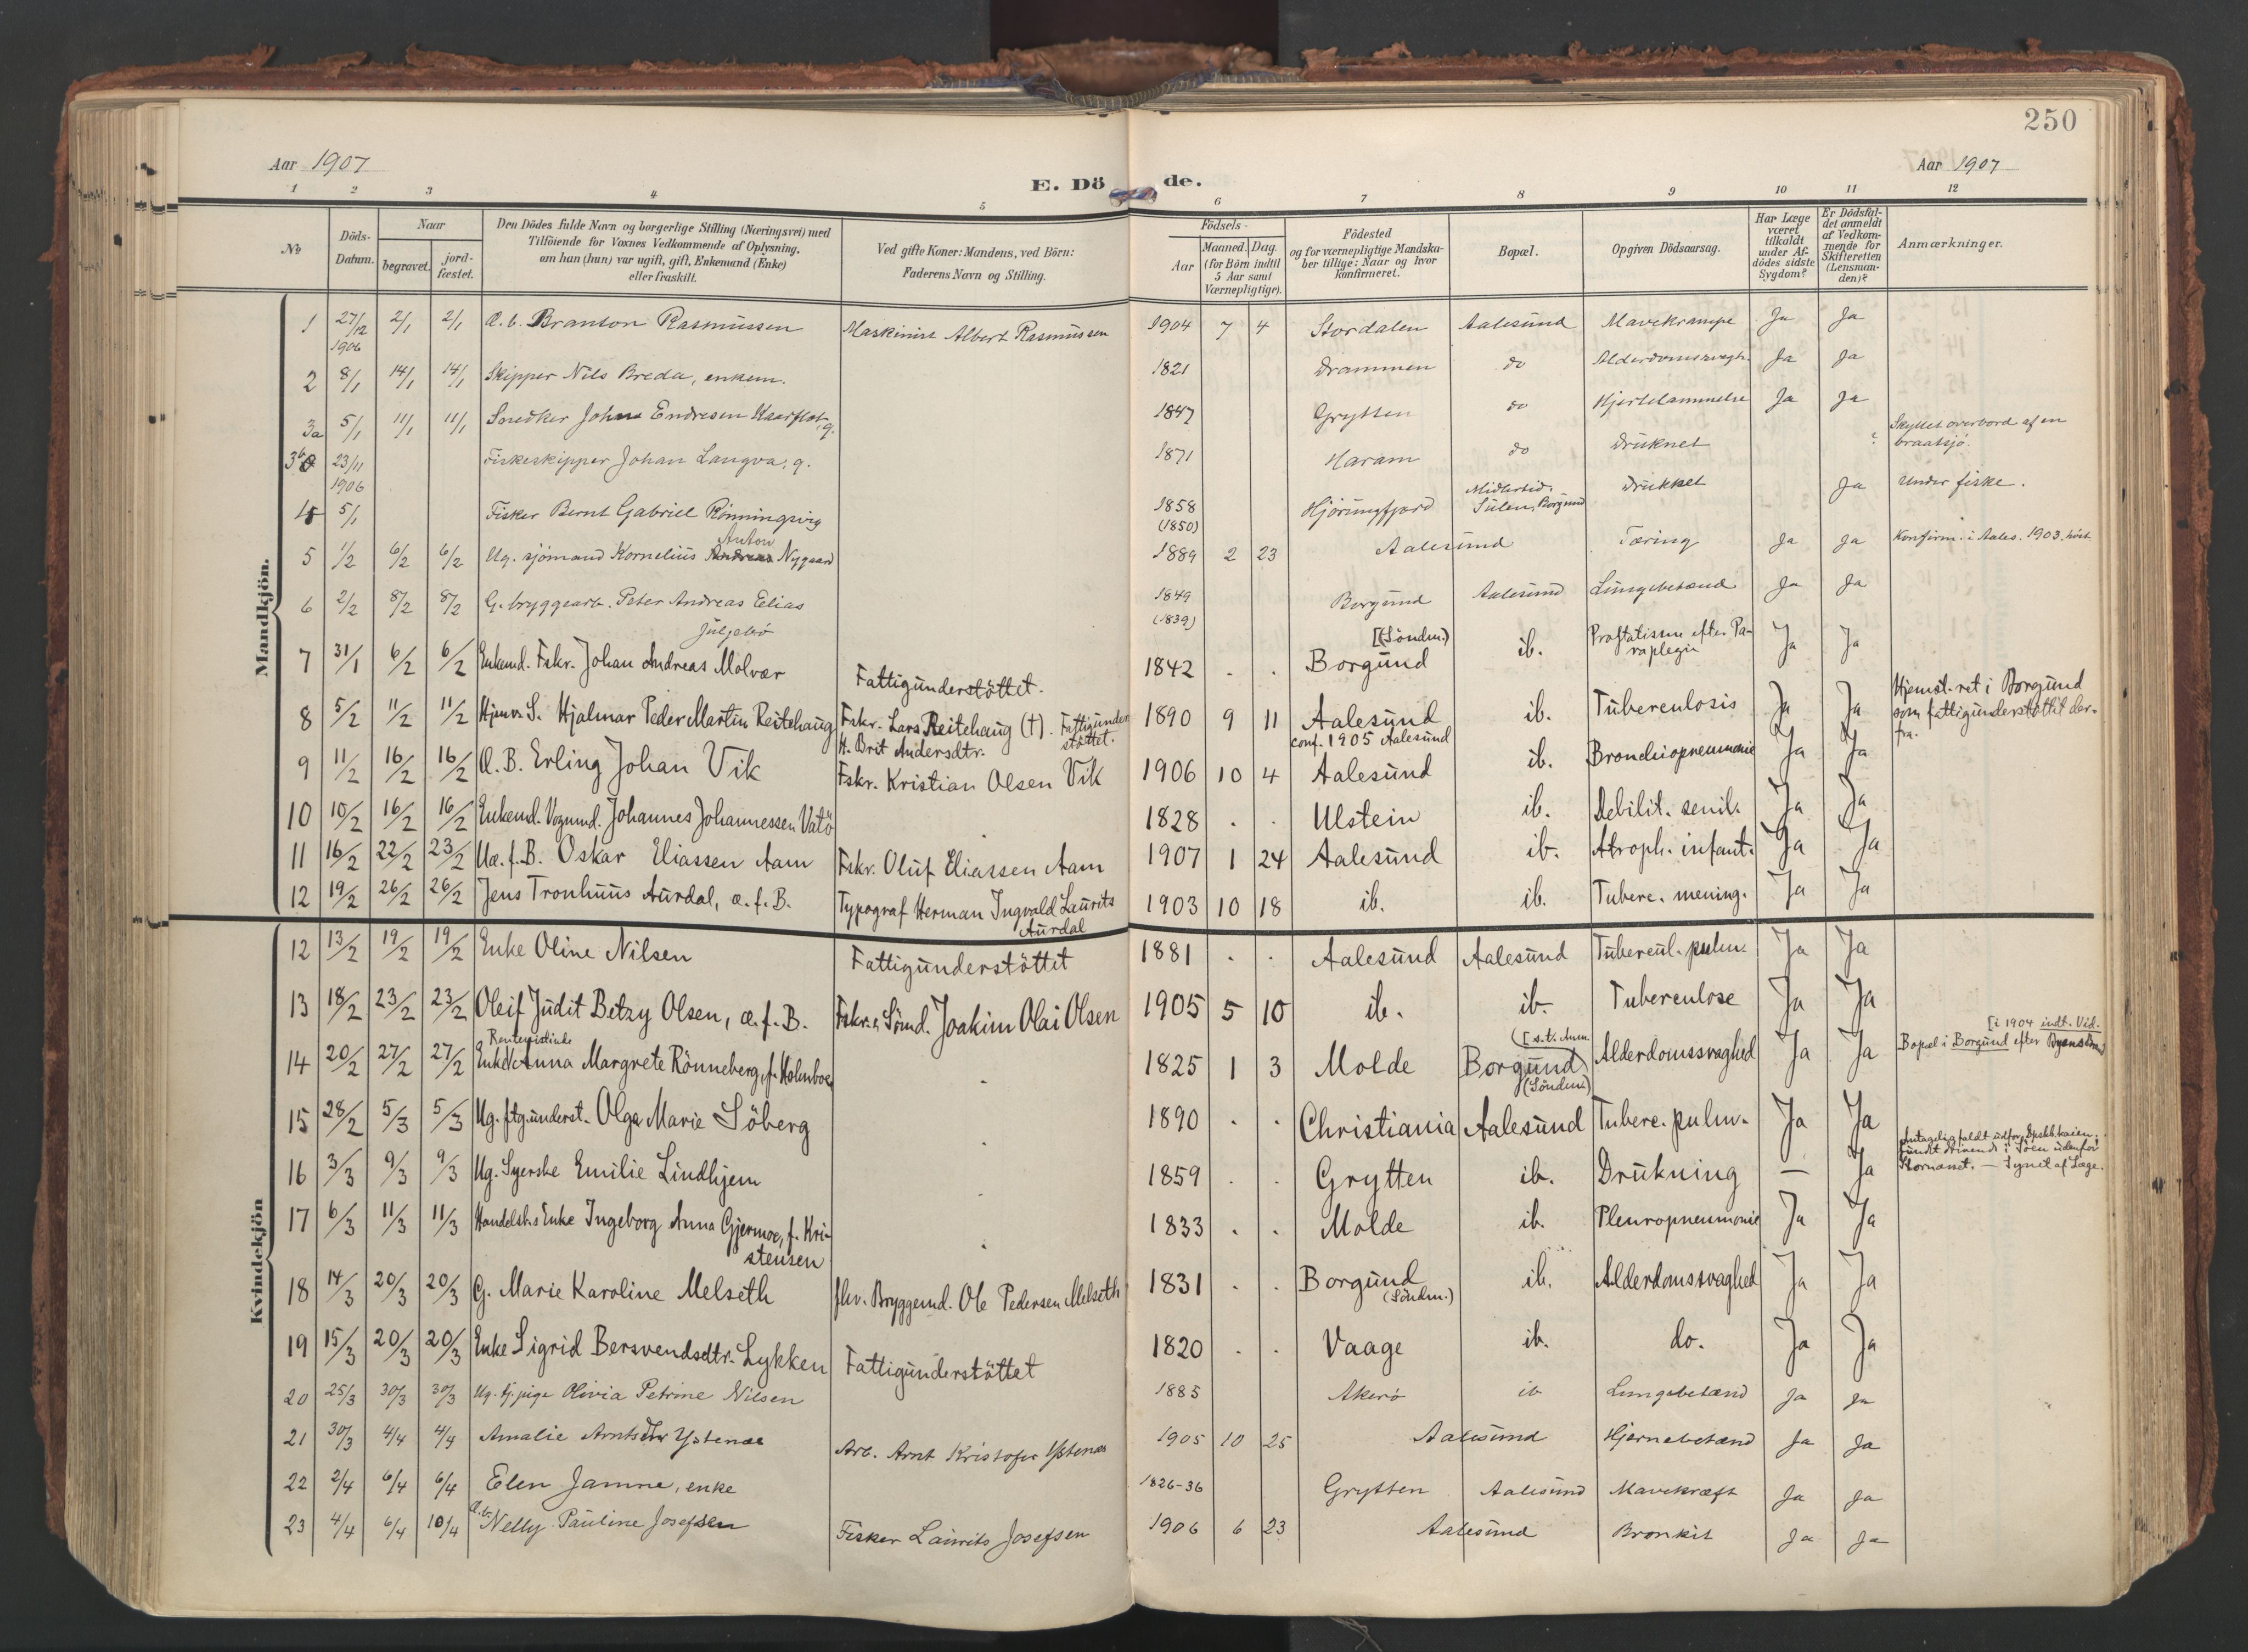 250
Aar 1907
E. Döde.
Aar 1907
1 2 3 4 5 6 7 8 9 10 11 12
№
Döds-Datum.
Naar
begravet.
jord-fæstet.
Den Dödes fulde Navn og borgerlige Stilling (Næringsvei) med
Tilföiende for Voxnes Vedkommende af Oplysning,
om han (hun) var ugift, gift, Enkemand (Enke)
eller fraskilt.
Ved gifte Koner: Mandens, ved Börn:
Faderens Navn og Stilling.
Födsels-
Aar
Maaned. Dag.
(for Börn indtil
5 Aar samt
Værnepligtige).
Födested
og for værnepligtige Mandska-
ber tillige: Naar og hvor
konfirmeret.
Bopæl.
Opgiven Dödsaarsag.
Har Læge
været
tilkaldt
under Af-
dödes sidste
Sygdom?
Er Dödsfal-
det anmeldt
af Vedkom-
mende for
Skifteretten
(Lensman-
den)?
Anmærkninger.
Mandkjön.
1 27/12 1906 2/1 2/1 Æ. b. Branton Rasmussen Maskinist Albert Rasmussen 1904 7 4 Stordalen Aalesund Mavekrampe Ja Ja
2 8/1 14/1 14/1 Skipper Nils Breda, enkem. 1821 Drammen do Alderdomssvagh. Ja Ja
3a 5/1 11/1 11/1 Snedker Johns Endresen Kaarflot, g. 1847 Grytten do Hjertelammelse Ja Ja
3b 23/11 1906 Fiskeskipper Johan Langva, g. 1871 Haram do Druknet ? Skyllet overbord af en
braatsjö.
4 5/1 Fisker Bernt Gabriel Rönningsvig 1858 (1850) Hjörungfjord Midlertid. Sulen, Borgund Druknet Ja Under fiske.
5 1/2 6/2 6/2 Ug. sjömand Kornelius Anton Nygaard 1889 2 23 Aalesund Tæring Ja Ja Konfirm. i Aales. 1903. höst
6 2/2 8/2 8/2 G. bryggearb. Peter Andreas Elias
Juljebö 1849 (1839) Borgund Aalesund Lungebetænd Ja Ja
7 31/1 6/2 6/2 Enkemd. Fskr. Johan Andreas Molvær Fattigunderstöttet. 1842 . . Borgund [(Söndm.) ib. Prostatisme efter Pa-
raplegie Ja Ja
8 5/2 11/2 11/2 Hjmv. S. Hjalmar Peder Martin Reitehaug Fskr. Lars Reitehaug (†). Fattigunder-
stöttet.
H. Brit Andersdtr. 1890 9 11 Aalesund
conf. 1905 Aalesund ib. Tuberculosis Ja Ja Hjemst. ret i Borgund
som fattigunderstöttet der-
fra.
9 11/2 16/2 16/2 Æ. B. Erling Johan Vik Fskr. Kristian Olsen Vik 1906 10 4 Aalesund ib. Bronchiopneumonie Ja Ja
10 10/2 16/2 16/2 Enkemd. Vognmd. Johannes Johannessen Vatö 1828 . . Ulstein ib. Debilit. senil. Ja Ja
11 16/2 22/2 23/2 Uæ. f. B. Oskar Eliassen Aam Fskr. Oluf Eliassen Aam 1907 1 24 Aalesund ib. Atroph. infant. Ja Ja
12 19/2 26/2 26/2 Jens Tronhuus Aurdal, æ. f. B. Typograf Herman Ingvald Laurits
Aurdal 1903 10 18 ib. ib. Tuberc. mening. Ja Ja
Kvindekjön
12 13/2 19/2 19/2 Enke Oline Nilsen Fattigunderstöttet 1881 . . Aalesund Aalesund Tubercul. pulm. Ja Ja
13 18/2 23/2 23/2 Oleif Judit Betzy Olsen, æ. f. B. Fskr. & Sömd. Joakim Olai Olsen 1905 5 10 ib. ib. Tuberculose Ja Ja
14 20/2 27/2 27/2 Enke Anna Margrete Rönneberg, f. Holmboe 1825 1 3 Molde Borgund [s. t. Anm.
(Söndm.) Alderdomssvaghed Ja Ja [i 1904 indt. Vid.
Bopæl i Borgund efter Byens Brand
15 28/2 5/3 5/3 Ug. ftg.underst. Olga Marie Söberg 1890 . . Christiania Aalesund Tuberc. pulm. Ja Ja
16 3/3 9/3 9/3 Ug. Syerske Emilie Lindhjem 1859 . . Grytten ib. Drukning — Ja Antagelig faldt udfor Dpskb.kaien;
fundet drivende i Söen udenfor
Stornæset. — Synet af Læge.
17 6/3 11/3 11/3 Handelsb.s Enke Ingeborg Anna Gjermoe, f. Kri-
stensen 1833 . . Molde ib. Pleuropneumonie Ja Ja
18 14/3 20/3 20/3 G. Marie Karoline Melseth fhv. Bryggemd. Ole Pedersen Melseth 1831 . . Borgund
(Söndm.) ib. Alderdomssvaghed Ja Ja
19 15/3 20/3 20/3 Enke Sigrid Bersvendsdtr. Lykken Fattigunderstöttet 1820 . . Vaage ib. do. Ja Ja
20 25/3 30/3 30/3 Ug. tj. pige Olivia Petrine Nilsen 1885 Akerö ib Lungebetænd Ja Ja
21 30/3 4/4 4/4 Amalie Arntsdtr Ystenæs Arb. Arnt Kristofer Ystenæs 1905 10 25 Aalesund Hjernebetænd Ja Ja
22 2/4 6/4 6/4 Elen Jamne, enke 1826-36 Grytten Aalesund Mavekræft Ja Ja
23 4/4 6/4 10/4 Æ.b. Nelly Pauline Josefsen Fisker Laurits Josefsen 1906 6 23 Aalesund Bronkit Ja Ja